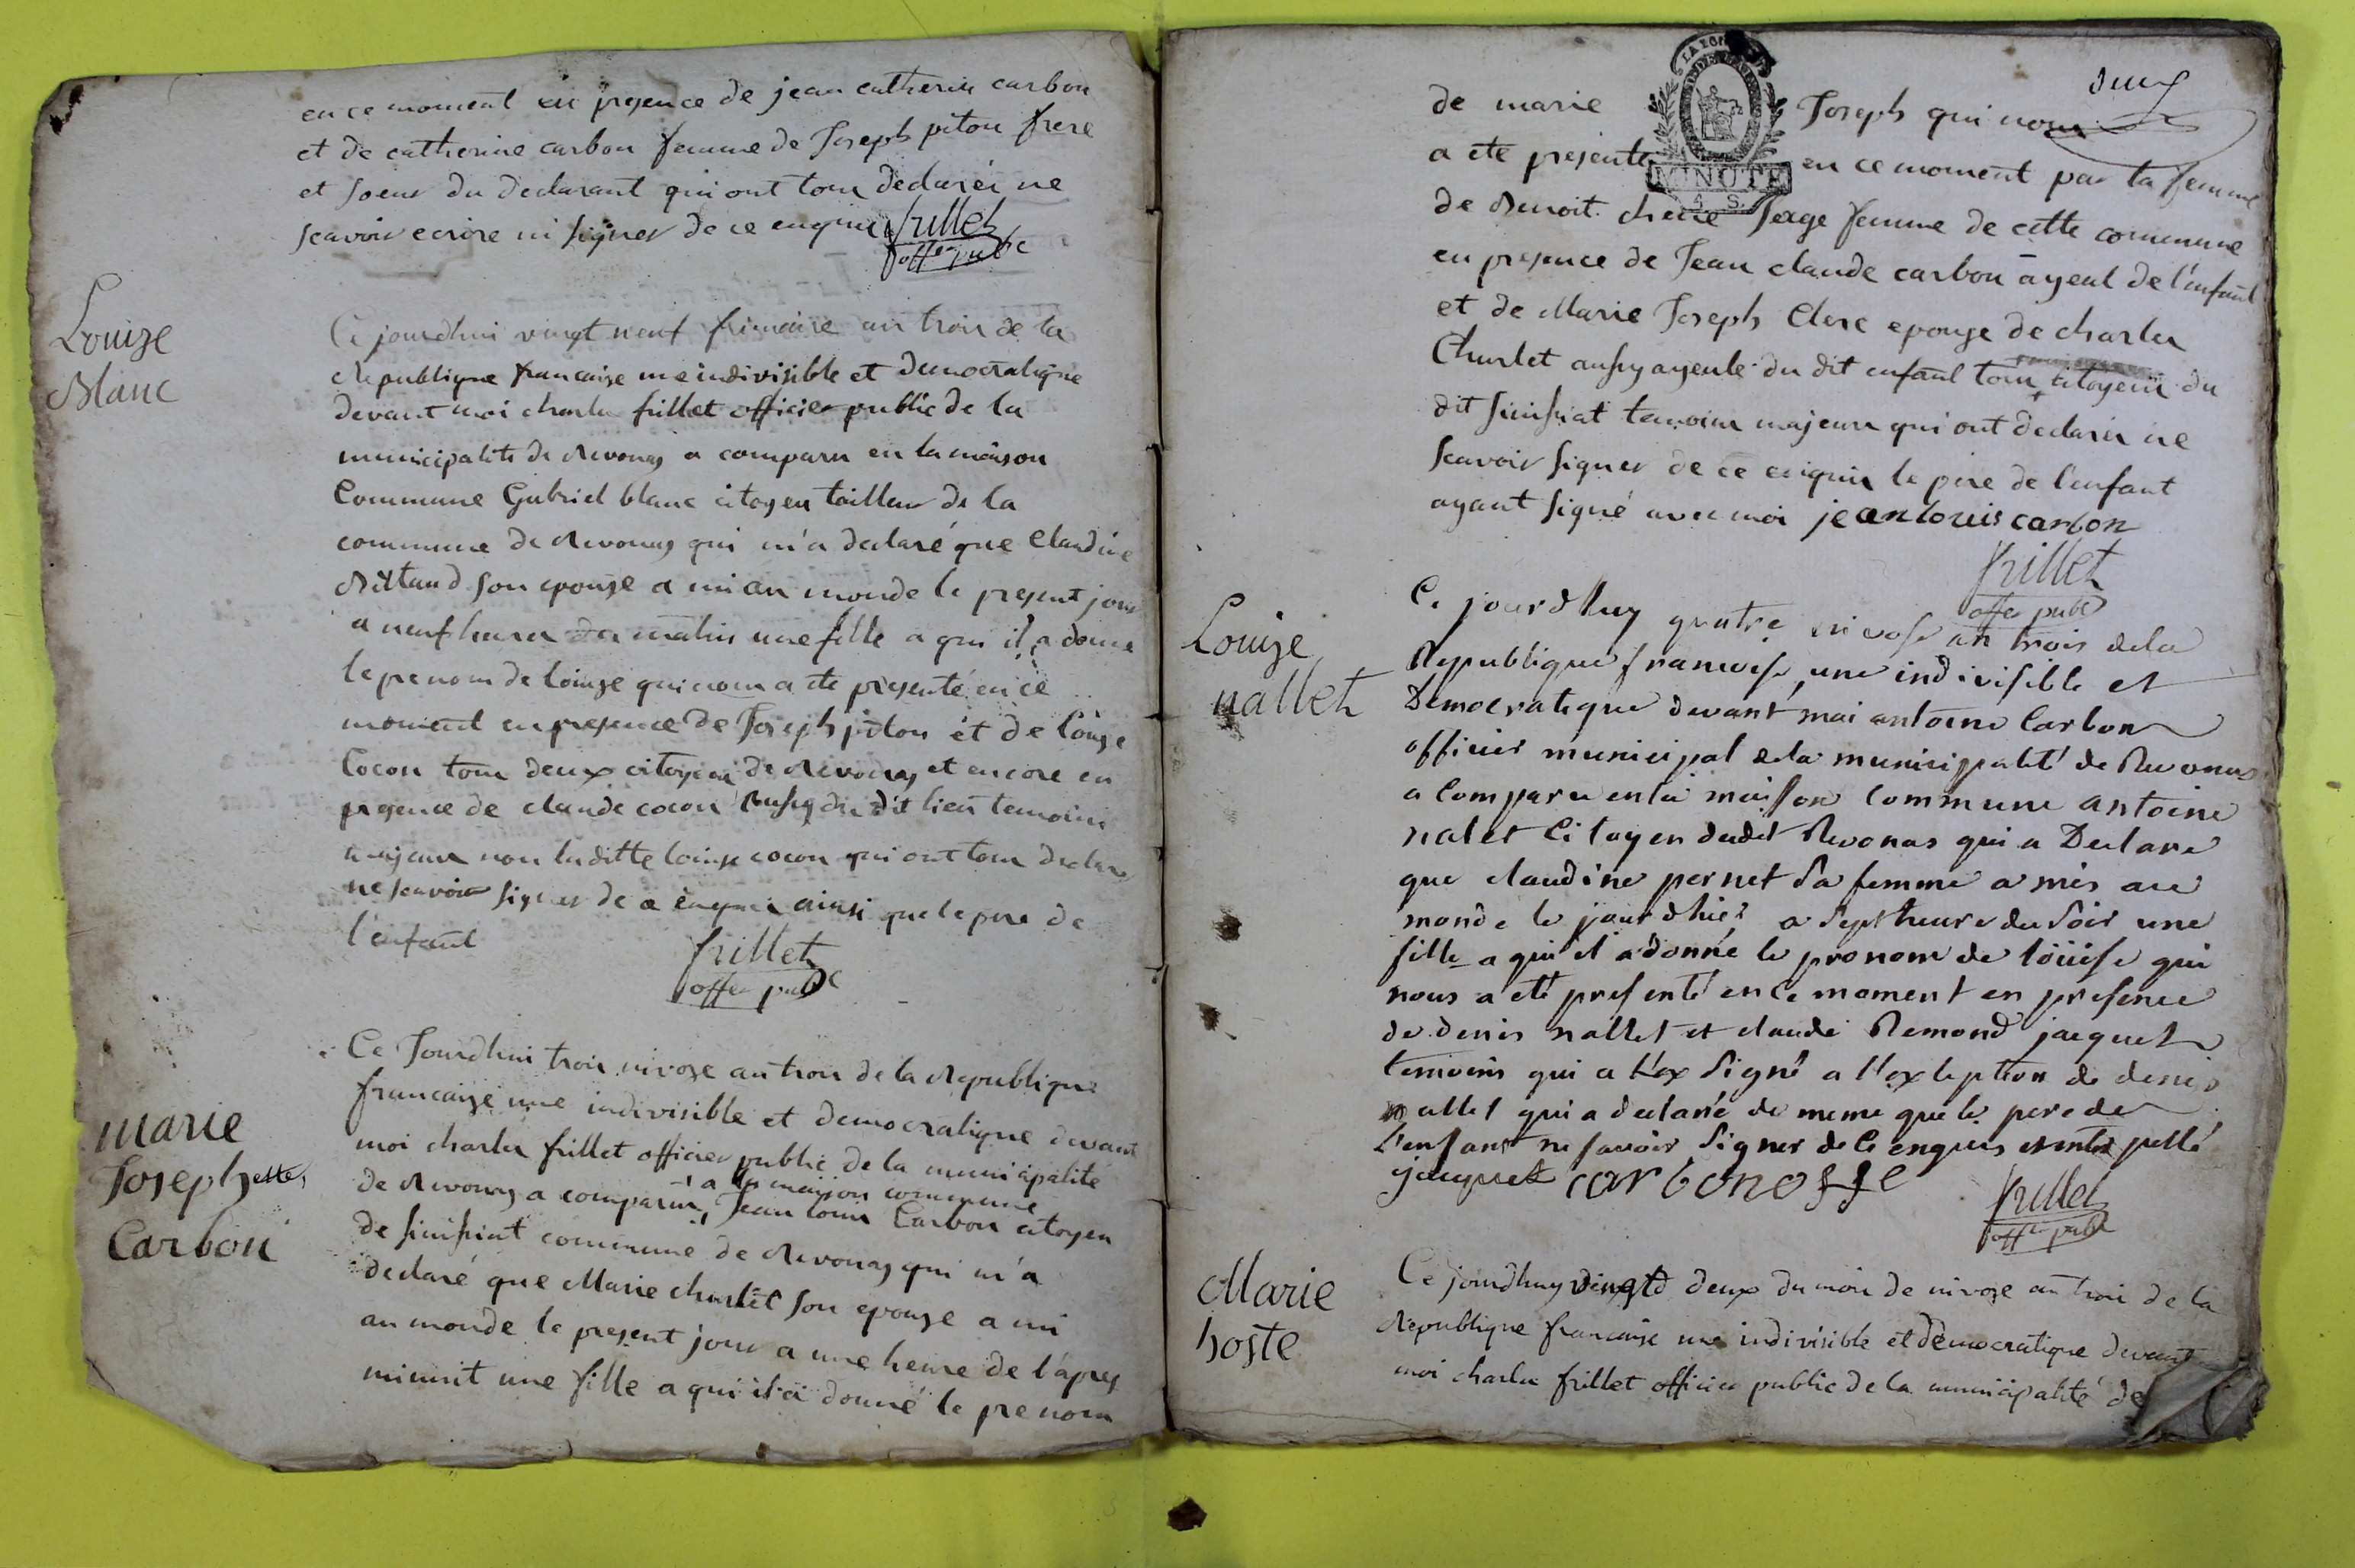 en ce moment en presence de jean catherin carbon
et de catherine carbon femme de Joseph piton frere
et soeur du declarant qui ont tous declarés ne
scavoir ecrire ni signer de ce enquis frillet
offer pubc
Louize
Blanc
Ce jourdhui vingt neuf frimaire an trois de la
Republique francaise une indivisible et democratique
devant moi charles frillet officier public de la
municipalité de Revonas a comparu en la maison
Commune Gabriel blanc citoyen tailleur de la
commune de Revonas qui m'a declaré que Claudine
son epouse a mis au monde le present jour
a neuf heures du matin une fille a qui il a donné
le prenom de louize qui nous a ete presenté en ce
moment en presence de Joseph piton et de louize
Cocon tous deux citoyens de Revonas et encore en
presence de claude cocon aussy du dit lieu temoins
majeurs non laditte louize cocon qui ont tous declaré
ne scavoir signer de ce enquis ainsi que le pere de
l'enfant
frillet
offer pubc
marie
Joseph ette
Carbon
Ce Jourdhui trois nivoze an trois de la Republique
francaize une indivisible et democratique devant
moi charles frillet officier public de la municipalité
a la maison commune
de Revonas a comparus Jean louis Carbon citoyen
de sinissiat commune de Revonas qui m'a
declaré que Marie churlet son epouze a mis
au monde le present jour a une heure de l'apres
minuit une fille a qui il a donné le prenom
deux
LA LOI
MINUTE
4 S.
de marie Joseph qui nous
a ete presenté en ce moment par la femme
de Benoit chene sage femme de cette commune
en presence de Jean claude carbon ayeul de l'enfant
et de Marie Joseph Clerc epouze de charles
Churlet aussy ayeule du dit enfant tous citoyens du
dit sinissiat temoins majeurs qui ont declarés ne
scavoir signer de ce enquis le pere de l'enfant
ayant signé avec moi jean louis carbon
frillet
offer pubc
Louize
nallet
Ce jourdhuy quatre nivose an trois de la
Republique francoise une indivisible et
Democratique devant moi antoine Carbon
officier municipal de la municipalité de Revonas
a Comparu en la maison Commune antoine
nalet Citoyen dudit Revonas qui a Declare
que claudine pernet sa femme a mis au
monde le jour dhier a sept heure du soir une
fille a qui il a donné le pronom de loüise qui
nous a eté presenté en ce moment en presence
de denis nallet et claude Remond jacquet
temoins qui a signé a l'exleption de denis
nallet qui a declaré de meme que le pere de
l'enfant ne savoir signer de Ce enquis et inter pellé
jacquet carbon offe
frillet
offer pubc
Marie
hoste
Ce jourdhuy vingtd deux du mois de nivoze an trois de la
Republique francaise une indivisible et democratique devant
moi charles frillet officier public de la municipalité de